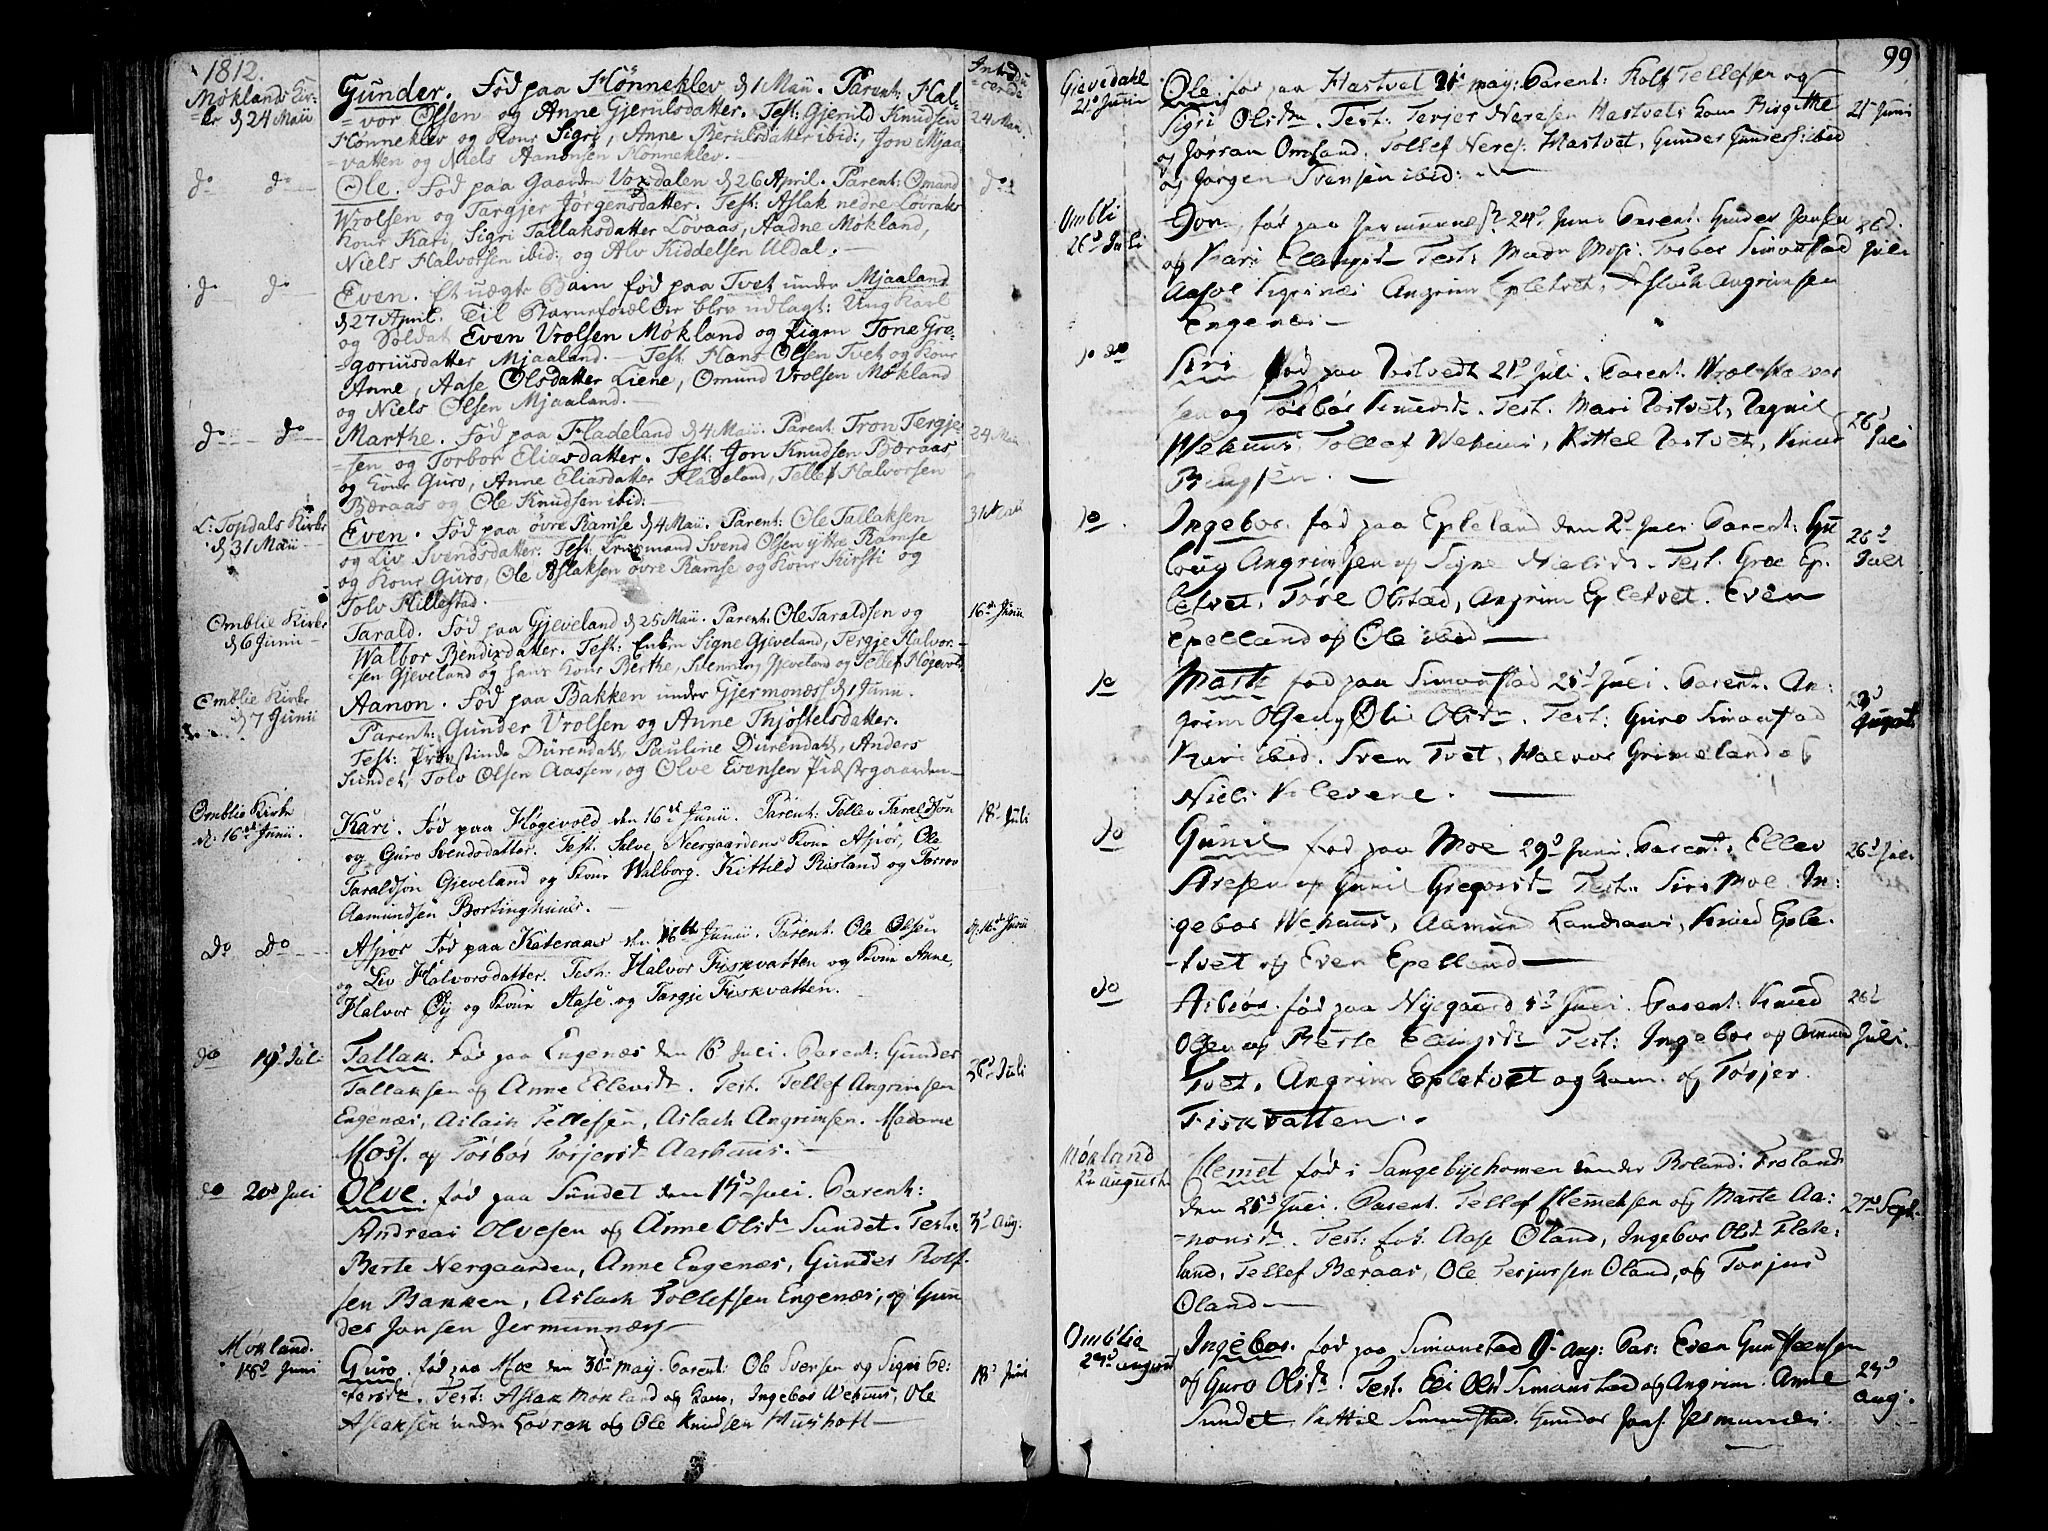 1812.
Møklands Kir-
=ke d 24 Maii
Introdu
=cerede
Gunder. Fød paa Hønneklev d 1 Maii. Parent: Hal-
=vor Olsen og Anne Gjerulsdatter. Test: Gjeruld Knudsen
24 Maii
Hønneklev og Kone Sigri, Anne Berulsdatter ibid:, Jon Mjaa
=vatten og Niels Aanonsen Hønneklev.
do do
Ole. Fød paa Gaarden Voxdalen d 26 April. Parent: Omund
do
Wrolsen og Targjer Jörgensdatter. Test: Aslak nedre Løvraks
Kone Kari, Sigri Tallaksdatter Løvaas, Aadne Møkland,
Niels Halvorsen ibid:, og Alv Kiddelsen Uldal.
do do
Even. Et uægte Barn fød paa Tvet under Mjaaland
d 27 April. Til Barneforældre blev udlagt: Ung Karl
og Soldat Even Vrolsen Møkland og Pigen Tone Gre-
=goriisdatter Mjaaland. — Test: Hans Olsen Tvet og Kone
Anne, Aase Olsdatter Liene, Omund Vrolsen Møkland
og Niels Olsen Mjaaland.
do do
Marthe. Fød paa Fladeland d 4 Maii. Parent: Tron Tergje-
24 Maii
=sen og Torbor Eliasdatter. Test: Jon Knudsen Bæraas
og Kone Guro, Anne Eliasdatter Fladeland, Tellef Halvorsen
Bæraas og Ole Knudsen ibid:
L: Topdals Kirke
d 31 Maii
Even. Fød paa øvre Ramse d 4 Maii. Parent: Ole Tallaksen
31 Maii
og Liv Svendsdatter. Test: Svend Olsen yttre Ramse
og Kone Guro, Ole Aslaksen øvre Ramse og Kone Kirsti og
Tolv Hillestad.
Omblie Kirke
d 6 Junii
Tarald. Fød paa Gjeveland d 25 Maii. Parent: Ole Taraldsen og
16 Junii
Walbor Bendixdatter. Test: Enken Signe Gjeveland, Tergje Halvor-
=sen Gjeveland og hans Kone Berthe, Gjeveland og Tellef Høgevold
Omblie Kirke
d 7 Junii
Aanon. Fød paa Bakken under Gjermonæss d 1 Junii.
Parent: Gunder Vrolsen og Anne Thjøstelsdatter.
Test: Provstinde Dürendahl, Pauline Dürendahl, Anders
Sundet, Tolv Olsen Aassen, og Olve Evensen Præstegaarden
Omblie Kirke
d. 16 Junii.
Kari. Fød paa Høgevold den 16 Junii. Parent: Tellev Taraldsøn
18 Juli
og Guro Svendsdatter. Test: Salve Neergaardens Kone Asjør, Ole
Taraldsøn Gjeveland og Kone Walborg. Kittild Risland og
Aamundsen Bortinghuus.
Do Do
Asjør Fød paa Kateraas den 16 Junii. Parent: Ole Olsen
d. 16 Junii
og Liv Halvorsdatter. Test: Halvor Fiskvatten og Kone Anne,
Halvor Øy og Kone Aase og Targje Fiskvatten.
do 19 Juli
Tallak. Fød paa Engenæs den 16 Juli. Parent: Gunder
26 Juli
Tallaksen og Anne Ellevsd. Test. Tellef Angrimsen
Engenæs, Aslach Tellefsen, Aslach Angrimsen. Madame
Moss. og Torbor Torjersd Aarhuus.
do 20 Juli
Olve. fød paa Sundet den 15 Juli. Parent:
Andreas Olvesen og Anne Olsd Sundet. Test:
3 Aug:
Berte Nergaarden, Anne Engenæs, Gunder Rolf-
sen Bakken, Aslach Tollefsen Engenæs, og Gun
der Jansen Jermunnæss
Mökland.
18 Juni
Guro. fød paa Moe den 30 may. Parent: Ole Svensen og Signe Pe-
18 Juni
tersd. Test: Aslak Mokland og Kone, Ingebor Wehuus, Ole
Aslaksen nedre Lovrak og Ole Knudsen Hushoft
99
Gievedahl
21 Juni
Ole. fød paa Hastvet 21 may: Parent: Rolf Tellefsen og
21 Juni
Sigri Olsd. Test: Terjer Neresen Hastvets Kone Birgitte
og Jorran Omland, Tollef Neres: Hastvet, Gunder Gunders: ibid
og Jorgen Svensen ibid:
Ombli
26 Juli
Jon, fød paa Jermunnes 24 Juni Parent. Gunder Jansen
26
Juli
og Kari Ellingsd Test: Madm Moss. Torbor Simonstad
Aasol Tigrinæs Angrim Epletvet, Aslach Angrimsen
Engenes
do
Siri fød paa Tostvedt 21 Juli. Parent. Wrol Halvor
sen og Torbor Knudsd. Test. Mari Tostvet, Ragnil
26
Juli
Wehuus, Tollef Wehuus, Kittel Tostvet, Knud
do.
Ingebor. fød paa Epleland den 2 Juli Parent: Gu
26
Juli
loug Angrimsen og Signe Nielsd. Test. Groe Ep-
letvet, Tore Olstad, Angrim Epletvet. Even
Epelland og Ole ibid
do
Marte fød paa Simonstad 25 Juli. Parent. An-
23
August
grim Olsen og Olie Olsd. Test: Guro Simonstad
Kari ibid. Sven Tvet, Halvor Grimeland og
Niels
do
Gunil fød paa Moe 29 Juni. Parent: Ellev
26 Juli
Aresen og Gunil Gregorsd Test: Siri Moe. In-
gebor Wehuus, Aamund Landraas, Knud Eple-
-tvet og Even Epelland
do
Asbiør. fød paa Nysgaard 5 Juli. Parent: Knud
26
Olsen og Berte Test: Ingebor og Omund
Juli.
Tvet, Angrim Epletvet og Kone. og Torjer
Fiskvatten.
Mökland
22 august
Clemet fød i under Roland i Froland
den 25 Juli. Parent. Tellef Clemetsen og Marte Aa-
27 Sept.
-nonsd. Test: Aase Oland, Ingebor Olsd Flate-
land, Tellef Bæraas, Ole Terjersen Oland, og Torjus
Oland
Omblia
23 august
Ingebor. fød paa Simonstad Aug: Par: Even Gun
23
Aug.
og Guro Olsd. Test. Eli Olsd Simonstad og Angrim. Anne
Sundet, Kittil Simonstad. Gunder Jans: Jermunnes.